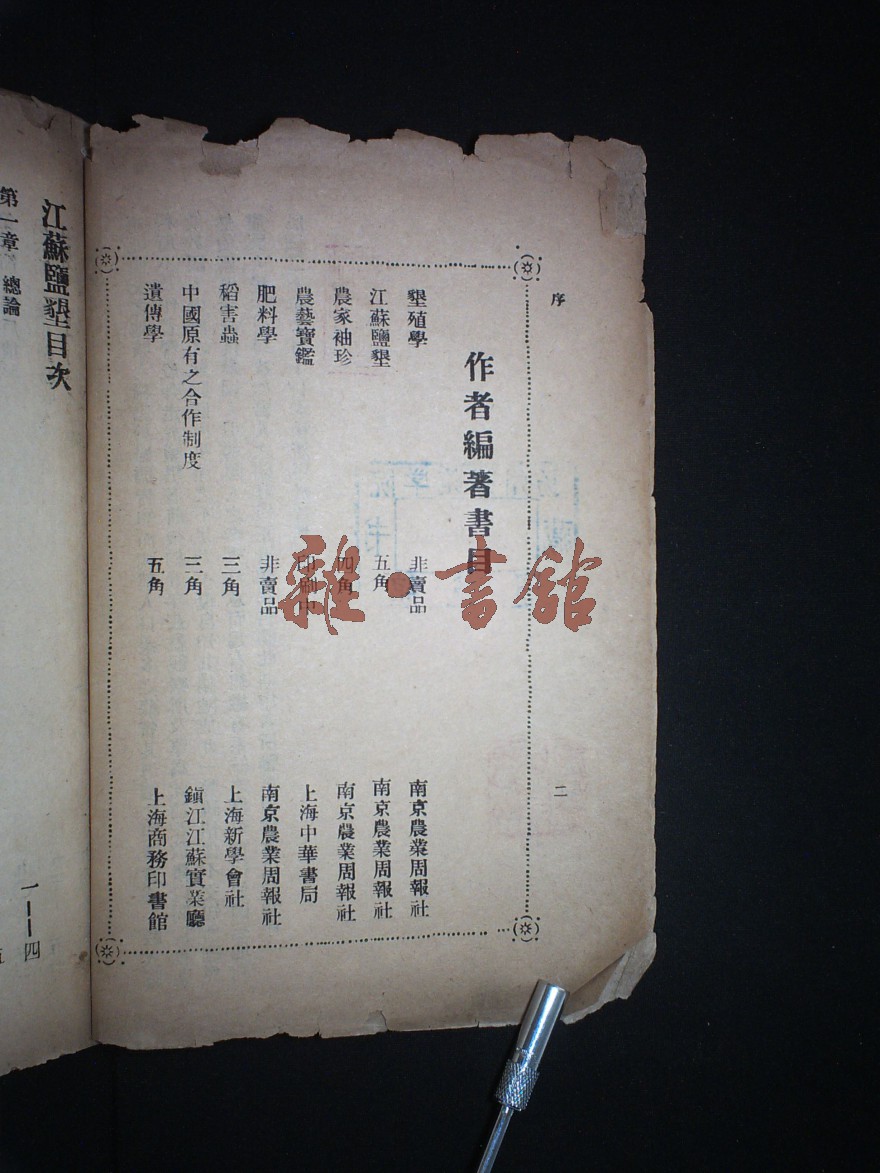 序
二
作者編著書目
墾殖學 非賣品 南京農業周報社
江蘇鹽墾 五角 南京農業周報社
農家袖珍 四角 南京農業周報社
農藝寶鑑 印刷中 上海中華書局
肥料學 非賣品 南京農業周報社
稻害蟲 三角 上海新學會社
中國原有之合作制度 三角 鎮江江蘇實業廳
遺傳學 五角 上海商務印書館
江蘇鹽墾目次
第一章 總論 一——四
雜·書館